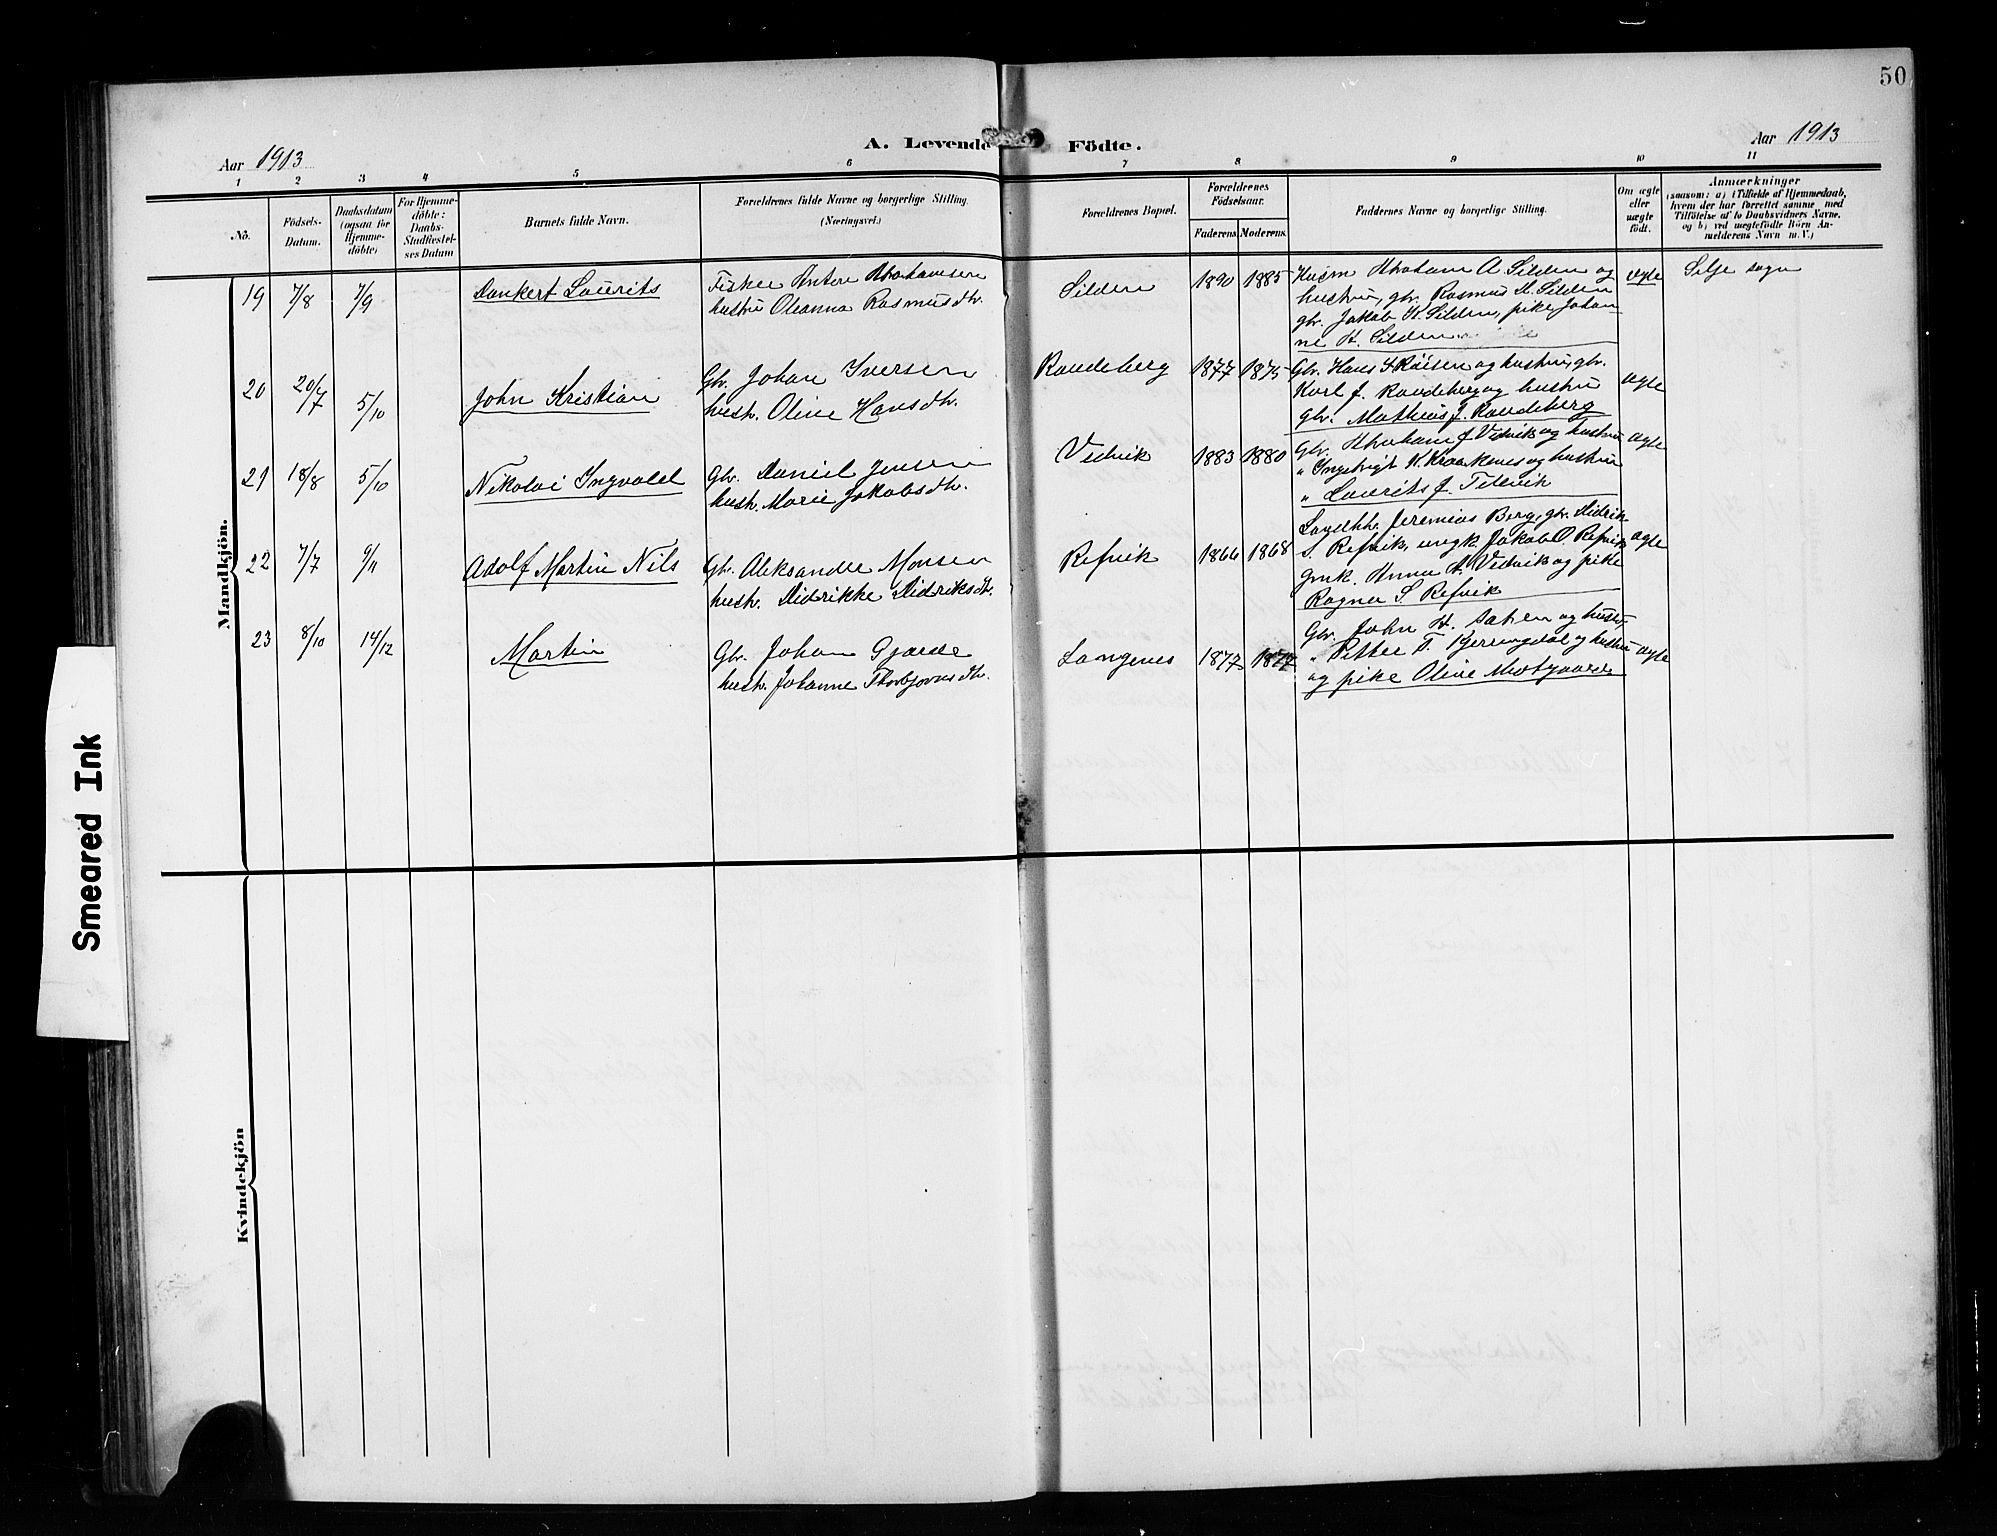 50
Aar 1913
A. Levende Födte.
Aar 1913
1 2 3 4 5 6 7 8 9 10 11
No.
Födsels-Datum.
Daabsdatum (ogsaa for Hjemmedöbte)
For Hjemmedöbte: Daabs-Stadfæstelses Datum
Barnets fulde Navn.
Forældrenes fulde Navne og borgerlige Stilling.
(Næringsvei.)
Forældrenes Bopæl.
Forældrenes Födselsaar.
Faderens Moderens
Faddernes Navne og borgerlige Stilling.
Om ægte eller uægte födt.
Anmærkninger
(saasom: a) i Tilfælde af Hjemmedaab,
hvem der har forrettet samme, med
Tilföielse af to Daabsvidners Navne.
og b) ved uægtefödte Börn An-
melderens Navn m.V.)
Mandkjön.
19 7/8 7/9 Dankert Laurits
Fisker Anton Abrahamsen
hustru Oleanna Rasmusdtr.
Silden 1890 1885
Husm Abraham A Silden og
hustru, gbr. Rasmus A. Silden
gbr. Jakob K. Silden, pike Johan-
ne A. Silden
ægte Selje sogn
20 20/7 5/10 John Kristian
Gbr. Johan Iversen
hustr. Oline Hansdtr.
Raudeberg 1877 1875
Gbr. Hans og hustru, gbr.
Karl J. Raudeberg og hustru
gbr. Mathias J. Raudeberg
ægte
21 18/8 5/10 Nikolai Ingvald
Gbr. Daniel Jensen
hustr. Marie Jakobsdtr.
Vedvik 1883 1880
Gbr. Abraham J Vedvik og hustru
" Ingebrigt K. Kraakenes og hustru
" Laurits J.
ægte
22 7/7 9/11 Adolf Martin Nils
Gbr. Aleksander Monsen
hustr. Didrikke Didriksdtr.
Refvik 1866 1868
Landhh. Jeremias Berg, gbr. Didrik
S. Refvik, ungk. Jakob O Refvik
gmk. Anna A. Vedvik og pike
Ragna S. Refvik
ægte
23 8/10 14/12 Martin
Gbr. Johan Gjærde
hustr. Johanne Thorbjørnsdtr.
Langenes 1877
Gbr. John H. og hustru,
" Petter T. og hustru
og pike Oline
ægte
Kvindekjön
Smeared Ink